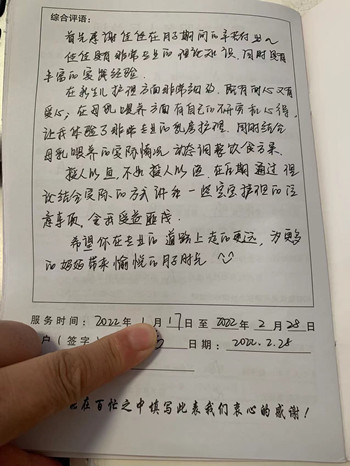 综合评语:
首先感谢佳佳在月子期间的辛苦付出~
佳佳具有非常专业的理论知识,同时具有
丰富的实操经验.
在新生儿护理方面非常细心,既有耐心又有
爱心,在母乳喂养方面有自己的研究和心得,
让我体验了非常专业的乳房护理.同时结合
母乳喂养的实际情况 动态调整饮食方案.
授人以鱼,不如授人以渔.在后期通过 理
论结合实际的方式 讲解一些宝宝护理的注
意事项,令我受益匪浅.
希望你在专业的道路上走的更远,为更多
的妈妈带来愉悦的月子时光
服务时间:2022年1月17日至2022年2月28日
户(签字) 日期:2022.2.28
在百忙之中填写此表我们衷心的感谢!